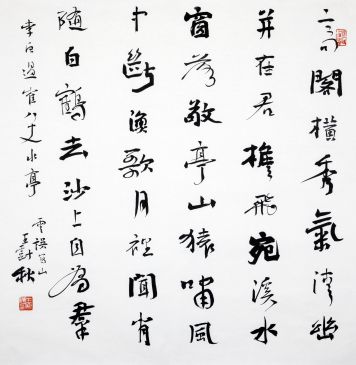 高閣橫秀氣清幽
并在君檐飛宛溪水
窗落敬亭山猿嘯風
中斷漁歌月裡聞閒
隨白鶴去沙上自為群
李白過崔八丈水亭
秋